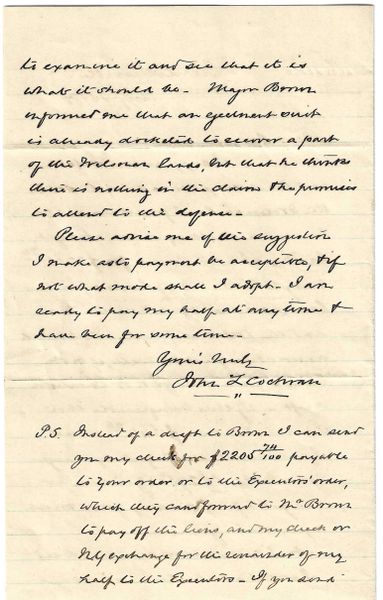 to examine it and see that it is
what it should be - Major Brown
informed me that an ejectment suit
is already docketed to recover a part
of the Welsman lands, but that he thinks
there is nothing in the claim & he promises
to attend to the defense -
Please advise me if the suggestion
I make as to payment be acceptible, & if
not what mode shall I adopt - I am
ready to pay my half at any time &
have been for some time -
Yours truly
John L Cochran
"
P.S. Instead of a draft to Brown I can send
you my check for $2205 74/100 payable
to your order or to the Executors' order,
which they can forward to Mr Brown
to pay off the liens, and my check or
N.Y. exchange for the remainder of my
half to the Executors - If you send